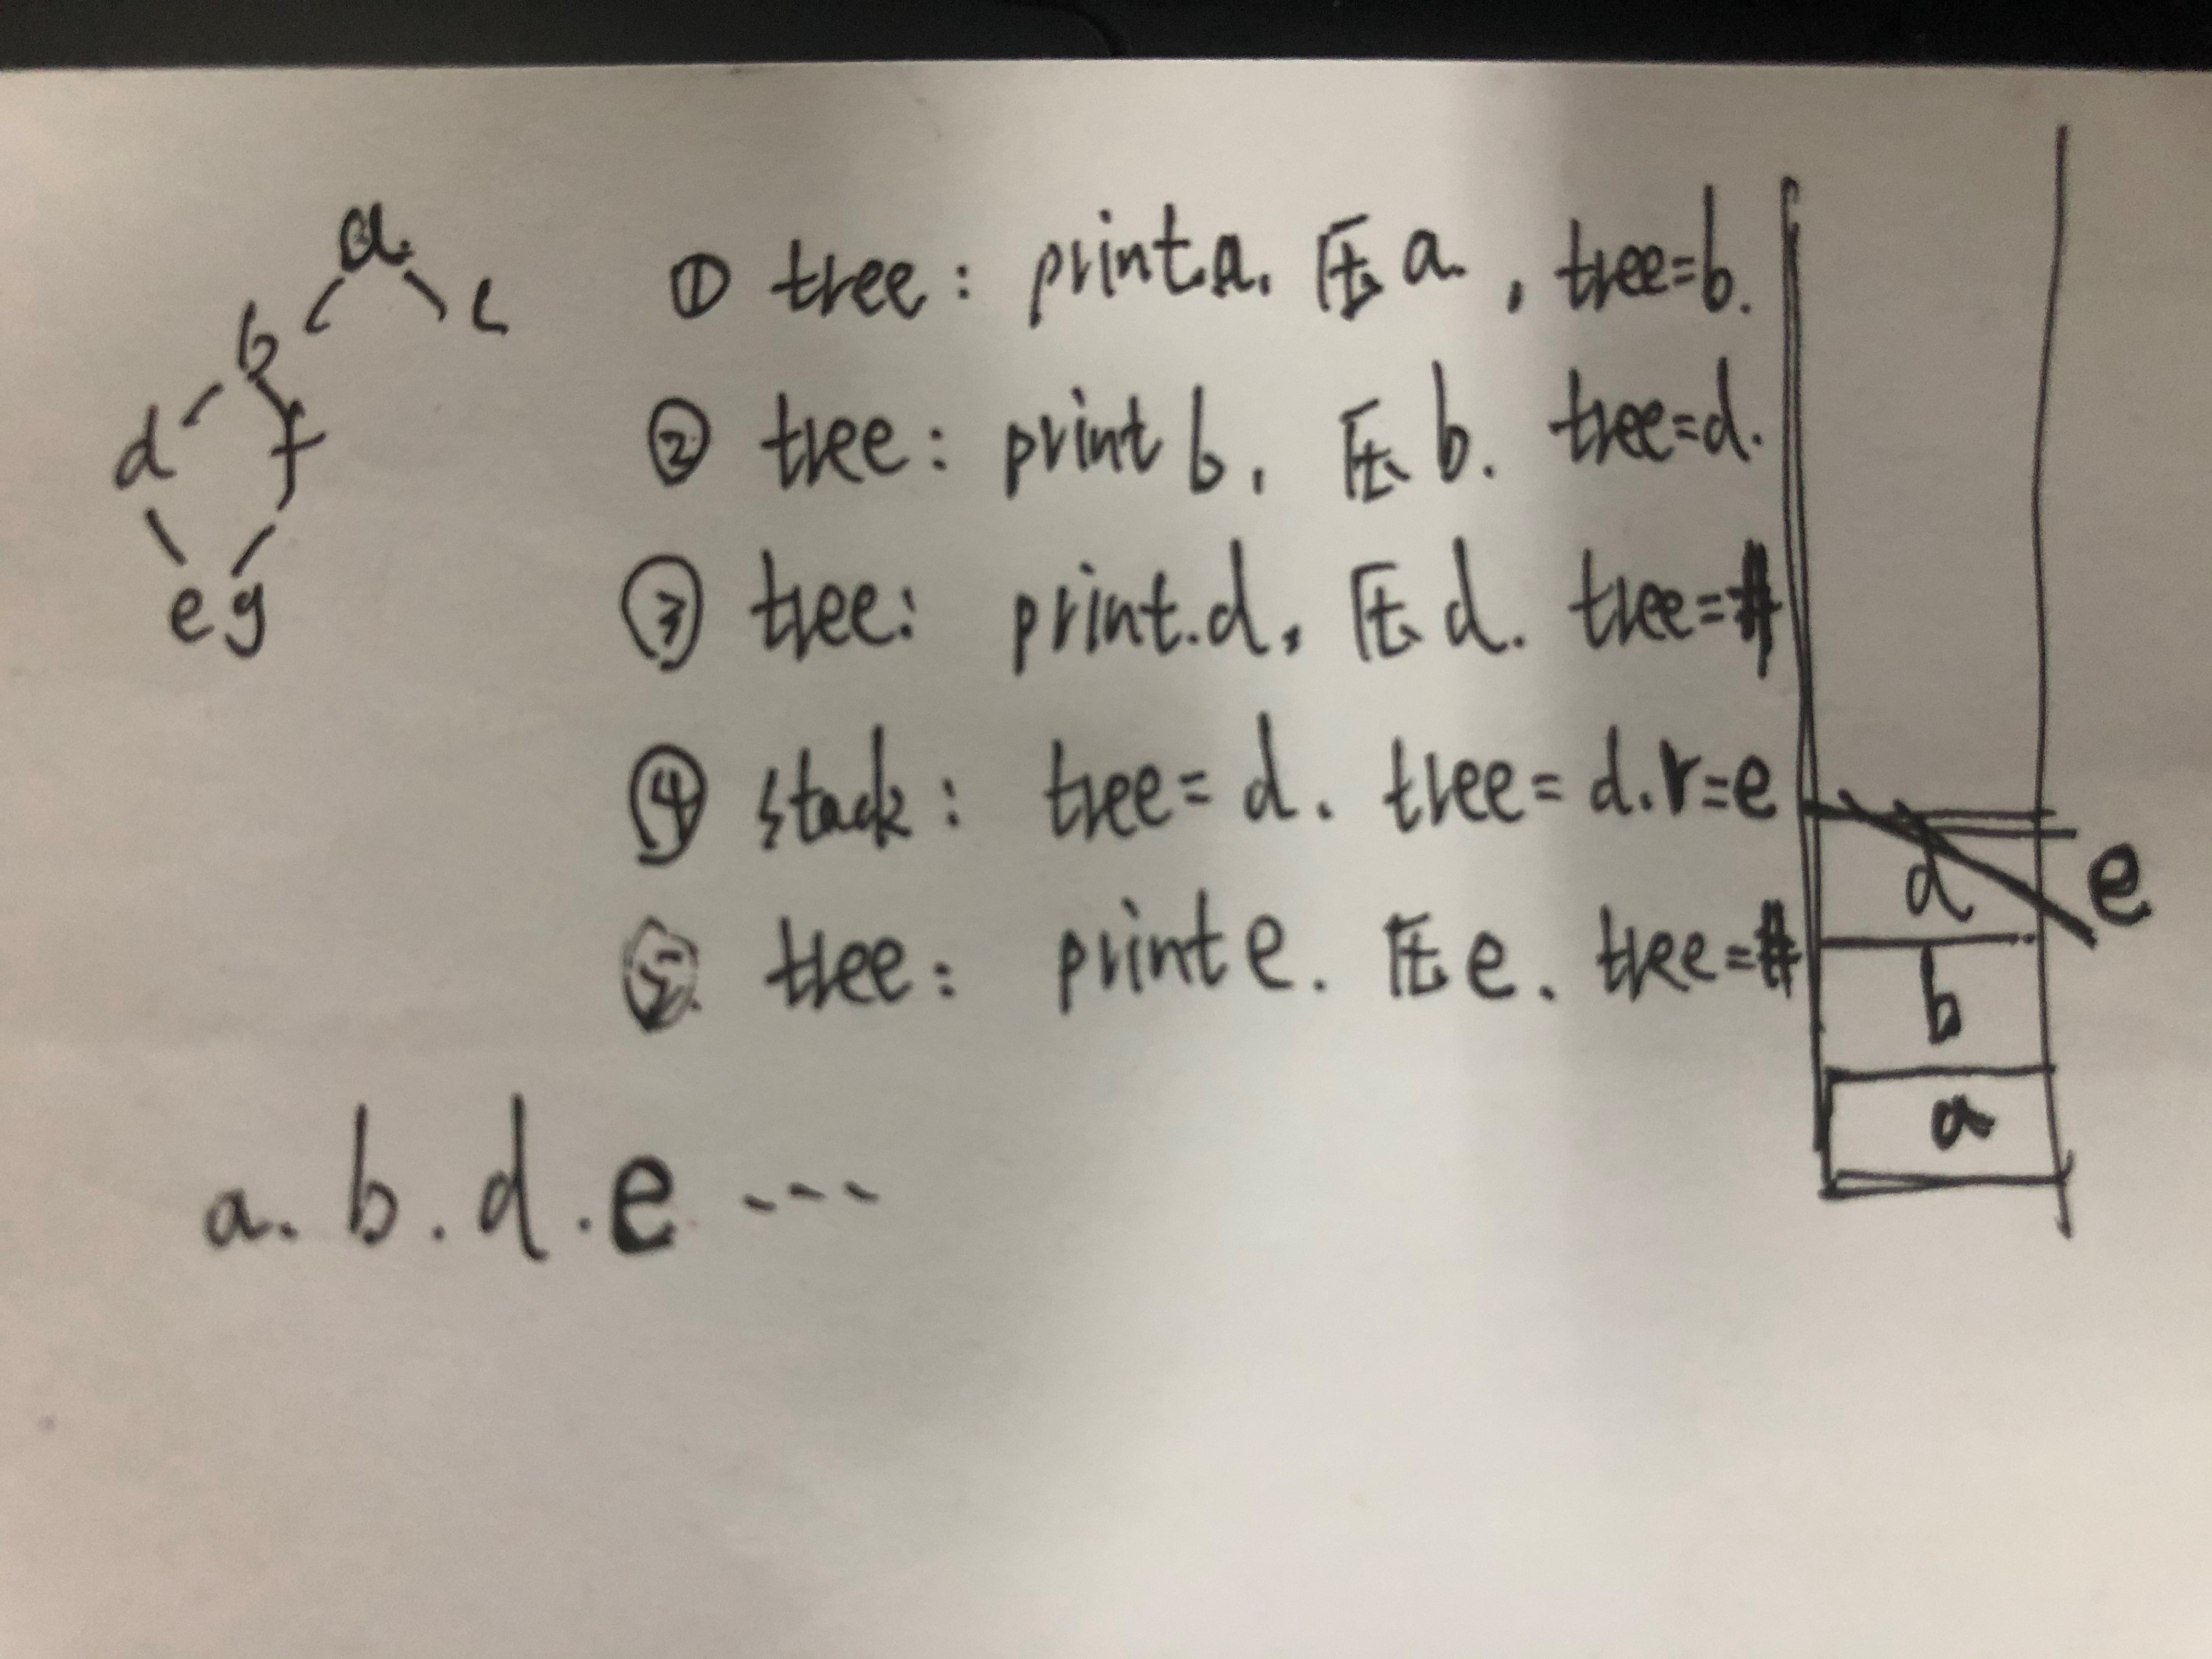 a.
b c
d f
e g
① tree: print a. 压 a. , tree=b.
② tree: print b, 压 b. tree=d.
③ tree: print.d, 压 d. tree=#
④ stack: tree= d. tree= d.r=e
⑤ tree: print e. 压 e. tree=#
d e
b
a
a. b. d. e ---